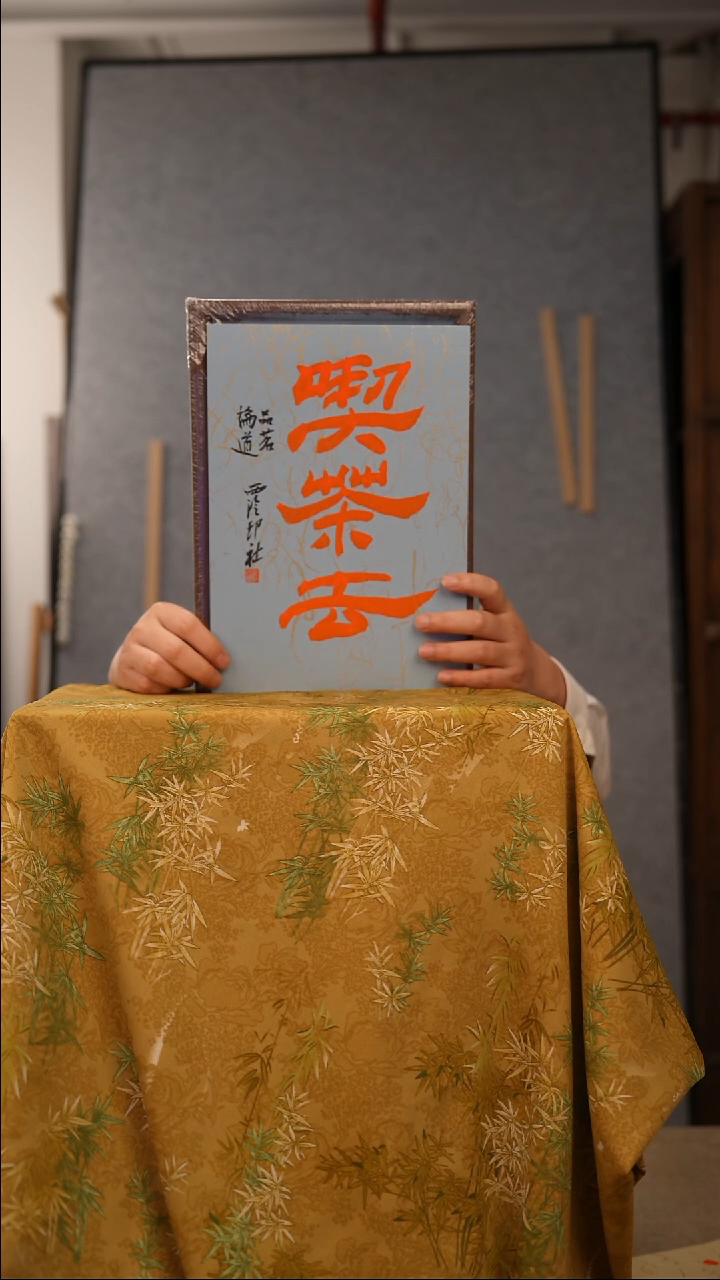 喫茶去
品茗
論道
西泠印社